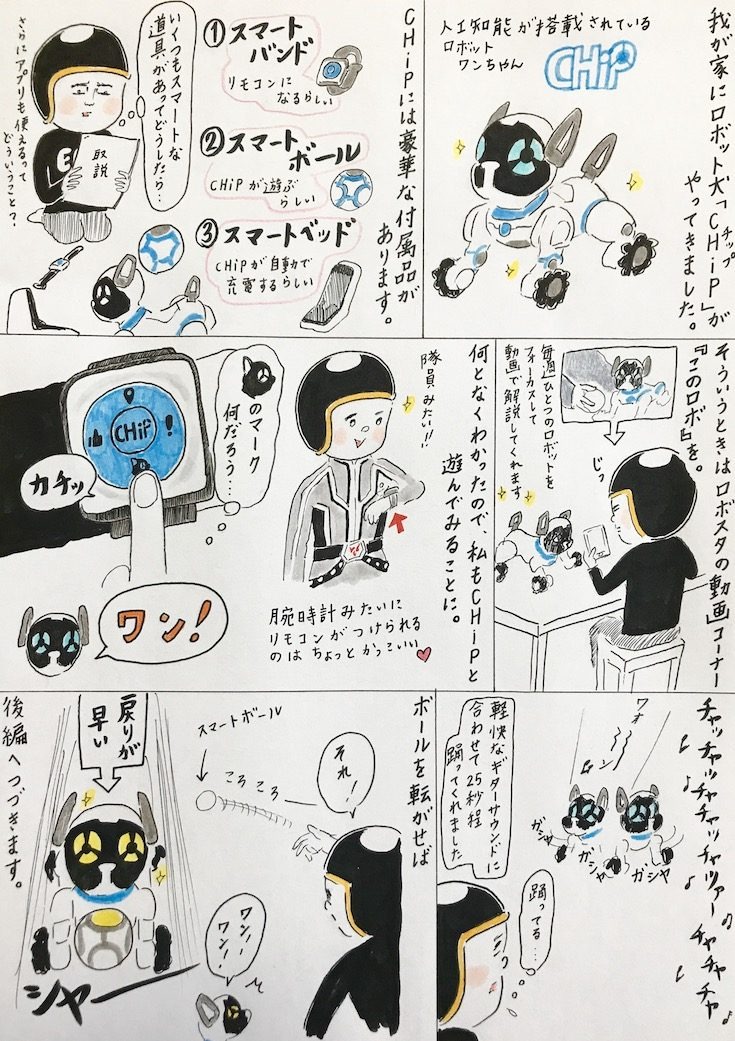 我が家にロボット犬「CHiP」が
チップ
やってきました。
人工知能が搭載されている
ロボット
ワンちゃん
CHiP
CHiPには豪華な付属品が
あります。
①スマート
バンド
リモコンに
なるらしい
②スマート
ボール
CHiPが遊ぶ
らしい
③スマートベッド
CHiPが自動で
充電するらしい
いくつもスマートな
道具があってどうしたら…
取説
さらにアプリも使えるって
どういうこと？
そういうときはロボスタの動画コーナー
『このロボ』を。
毎週ひとつのロボットを
フォーカスして
動画で解説してくれます
じっ
何となくわかったので、私もCHiPと
遊んでみることに。
隊員みたい!!
腕時計みたいに
リモコンがつけられる
のはちょっとかっこいい
のマーク
何だろう…
CHiP
カチッ
ワン!
チャッチャッチャチャッチャッチャツァーチャチャチャ
ワオ
ーン
ガシャ
ガシャ
ガシャ
軽快なギターサウンドに
合わせて25秒程
踊ってくれました
踊ってる…
ボールを転がせば
スマートボール
ころころ
それ！
ワンワン
ワン！
戻りが
早い
シャー
後編へつづきます。